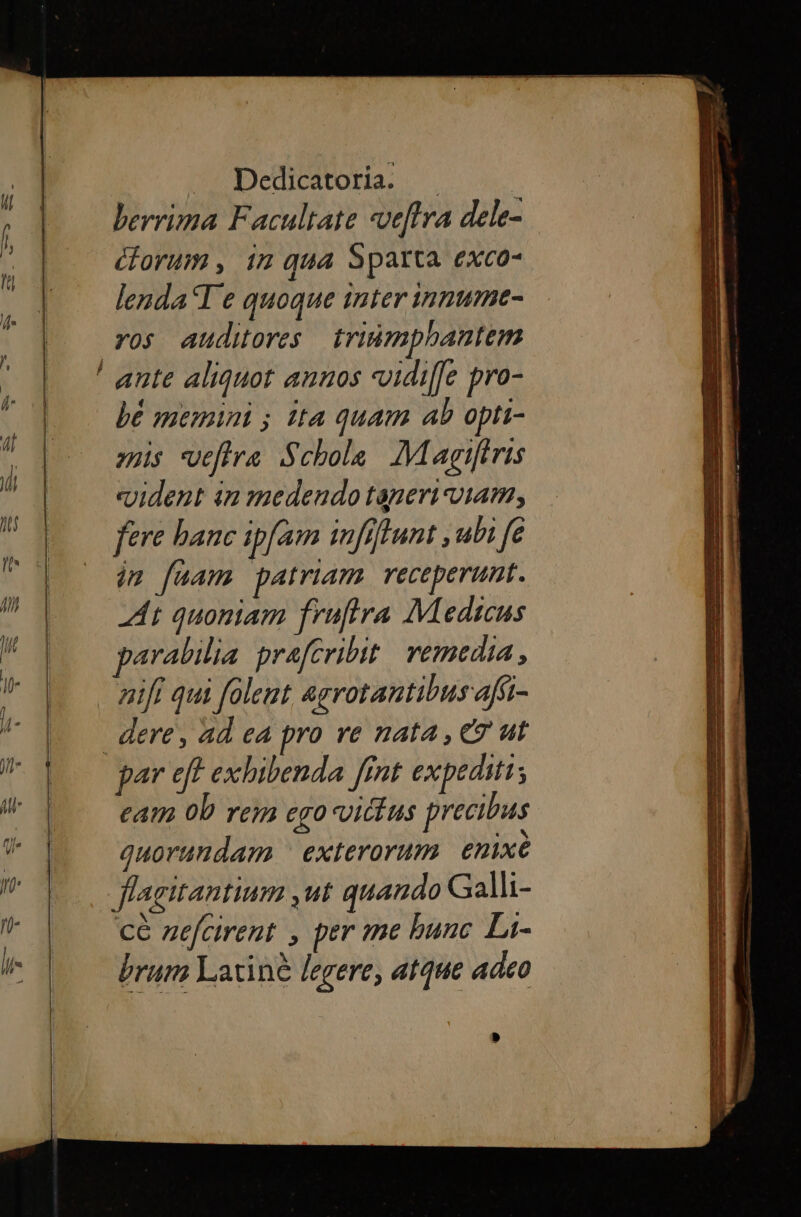 Dedicatoria.
berrima Facultate veſtra dele-
ctorum, in qua Sparta exco-
lenda Te quoque inter innume-
ros auditores triúmphantem
ante aliquot annos vidiſſe pro-
bé memini ; ita quam ab opti-
mis veſtræ Scholæ Magiſtris
vident in medendo teneri viam,
fere hanc ipſam inſiſtunt, ubi ſe
in ſuam patriam receperunt.
At quoniam fruſtra Medicus
parabilia præſcribit remedia,
niſi qui ſolent ægrotantibus aſſi-
dere, ad ea pro re nata, & ut
par eſt exhibenda ſint expediti;
eam ob rem ego victus precibus
quorundam exterorum enixè
flagitantium, ut quando Galli-
cè neſcirent, per me hunc Li-
brum Latinè legere, atque adeo